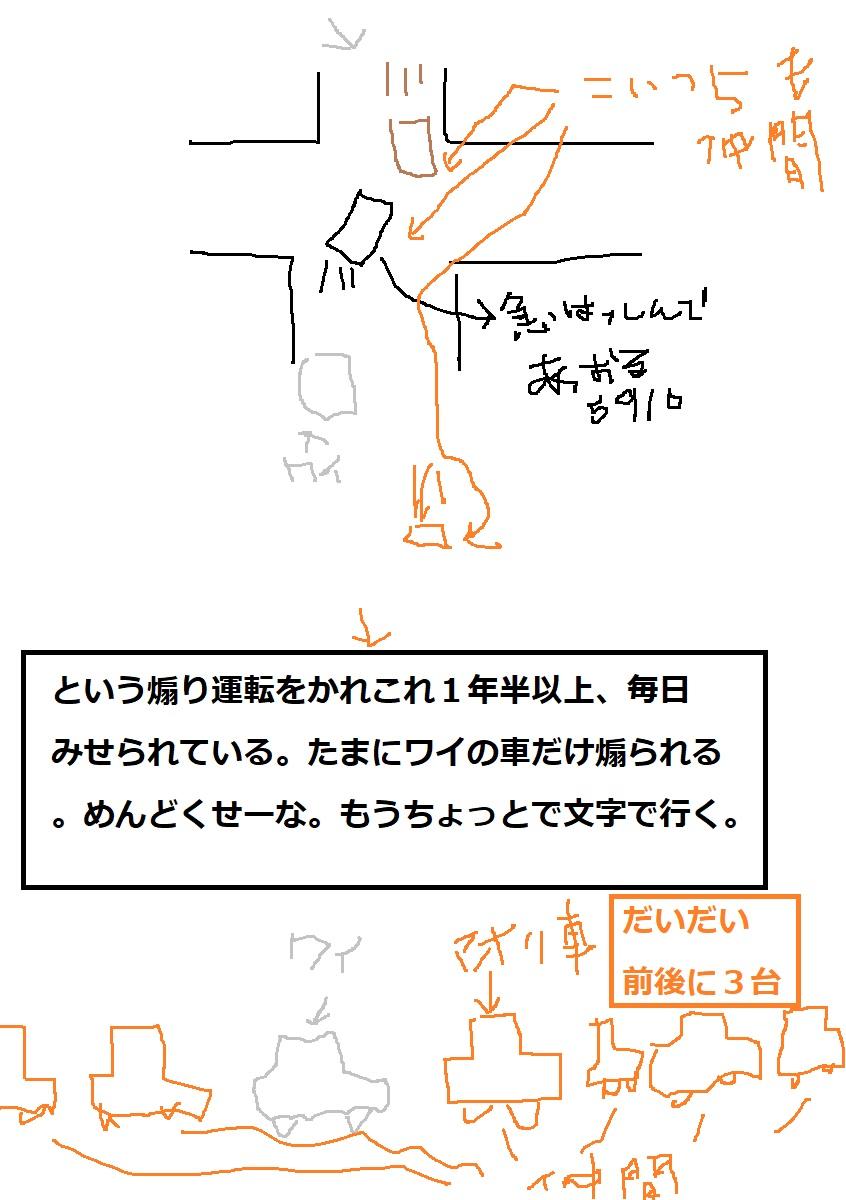 こいつらも
仲間
急はっしんで
あおる
5910
ワイ
という煽り運転をかれこれ１年半以上、毎日
みせられている。たまにワイの車だけ煽られる
。めんどくせーな。もうちょっとで文字で行く。
ワイ
だいだい
前後に３台
仲間